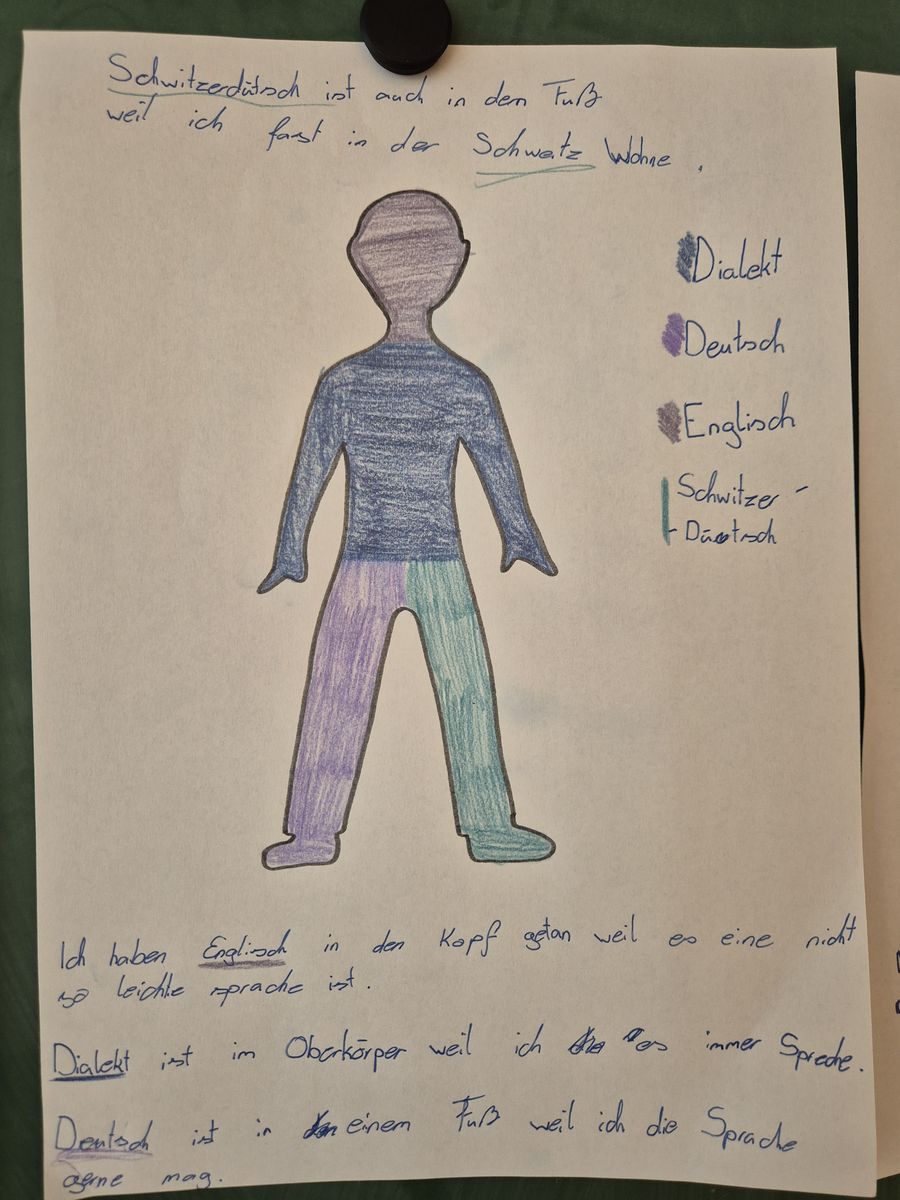 Schwitzerdütsch ist auch in dem Fuß
weil ich fast in der Schweitz Wohne.
Dialekt
Deutsch
Englisch
Schwitzer -
- Düotsch
Ich haben Englisch in den Kopf getan weil es eine nicht
so leichte sprache ist.
Dialekt ist im Oberkörper weil ich es immer Spreche.
Deutsch ist in einem Fuß weil ich die Sprache
gerne mag.